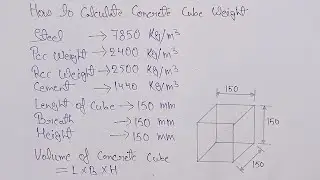 How to Calculate Concrete Cube Weight
Steel → 7850 Kg/m³
Pcc Weight → 2400 Kg/m³
Rcc Weight → 2500 Kg/m³
Cement → 1440 Kg/m³
Lenght of Cube → 150 mm
Breath → 150 mm
Height → 150 mm
Volume of Concrete Cube
= L × B × H
150
150
150